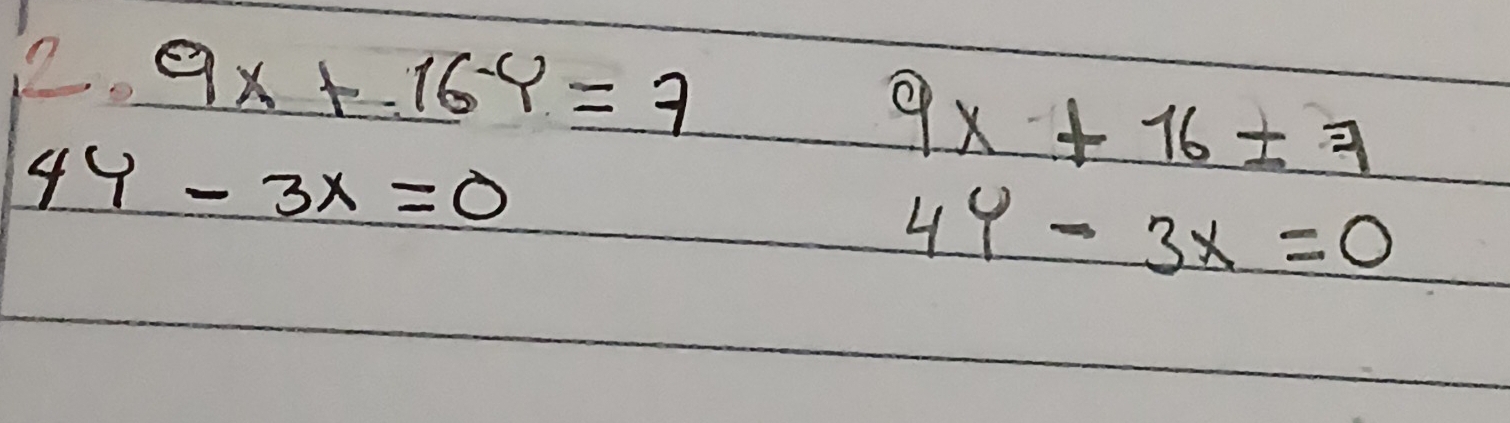 2. 9x + 16Y = 7 9x + 16 ± 7
4Y - 3x = 0 4Y - 3x = 0